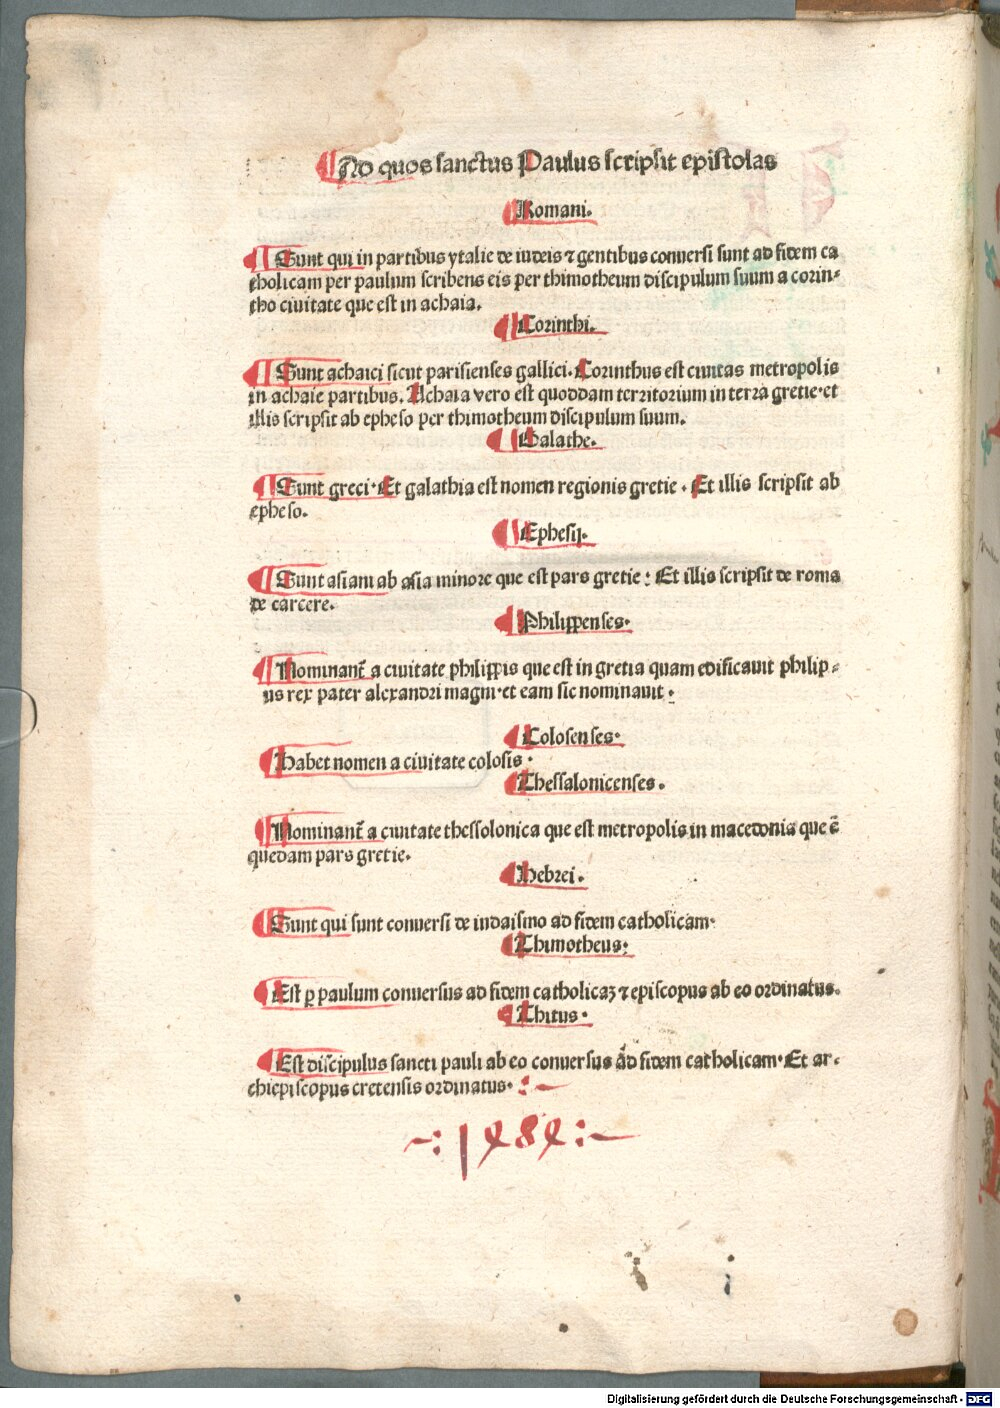 Ad quos sanctus Paulus scripsit epistolas
Romani.
Sunt qui in partibus ytalie de iudeis ⁊ gentibus conuersi sunt ad fidem ca
tholicam per paulum scribens eis per thimotheum discipulum suum a corin-
tho ciuitate que est in achaia.
Corinthi.
Sunt achaici sicut parisienses gallici. Corinthus est ciuitas metropolis
in achaie partibus. Achaia vero est quoddam territorium in terra gretie·et
illis scripsit ab epheso per thimotheum discipulum suum.
Galathe.
Sunt greci·Et galathia est nomen regionis gretie. Et illis scripsit ab
epheso.
Ephesij.
Sunt asiani ab asia minore que est pars gretie: Et illis scripsit de roma
de carcere.
Philippenses·
Nominant̄ a ciuitate philippis que est in gretia quam edificauit philip-
us rex pater alexandri magni·et eam sic nominauit:
Colosenses·
Habet nomen a ciuitate colosis·
Thessalonicenses.
Nominant̄ a ciuitate thessolonica que est metropolis in macedonia que ē
quedam pars gretie.
Hebrei.
Sunt qui sunt conuersi de iudaismo ad fidem catholicam·
Thimotheus:
Est ꝑ paulum conuersus ad fidem catholicaꝫ ⁊ episcopus ab eo ordinatus.
Thitus·
Est discipulus sancti pauli ab eo conuersus ad fidem catholicam·Et ar-
chiepiscopus cretensis ordinatus·:~
~:1484:~
Digitalisierung gefördert durch die Deutsche Forschungsgemeinschaft - DFG